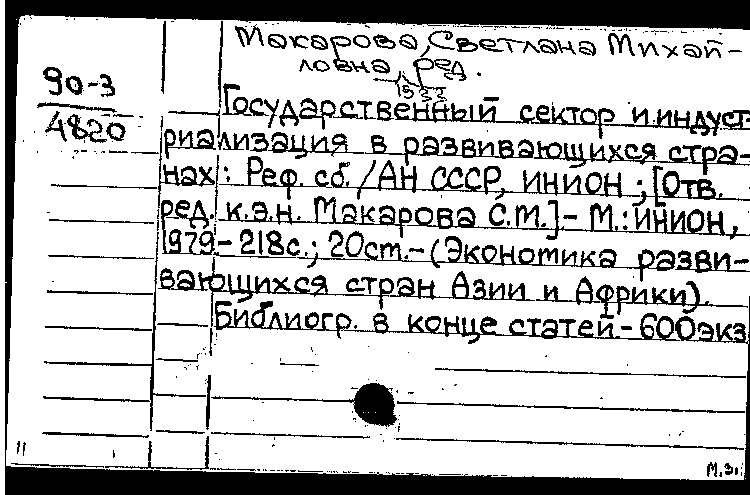 Макарова, Светлана Михай-
ловна, ред.
90-3
4820
Государственный сектор и индуст-
риализация в развивающихся стра-
нах: Реф. сб. / АН СССР, ИНИОН; [Отв.
ред. к.э.н. Макарова С.М.] - М.: ИНИОН,
1979 - 218с.; 20см. - (Экономика разви-
вающихся стран Азии и Африки).
Библиогр. в конце статей - 600экз